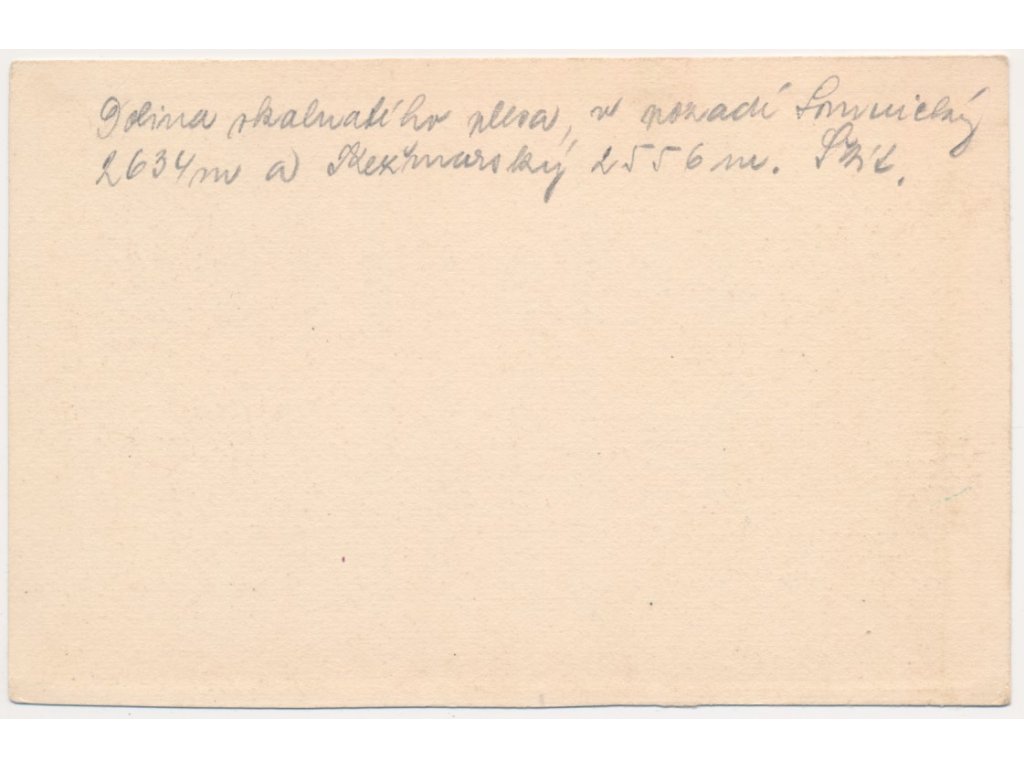 Dolina skalnatého plesa, v pozadí Lomnický
2634m a Kežmarský 2556m. Štít.